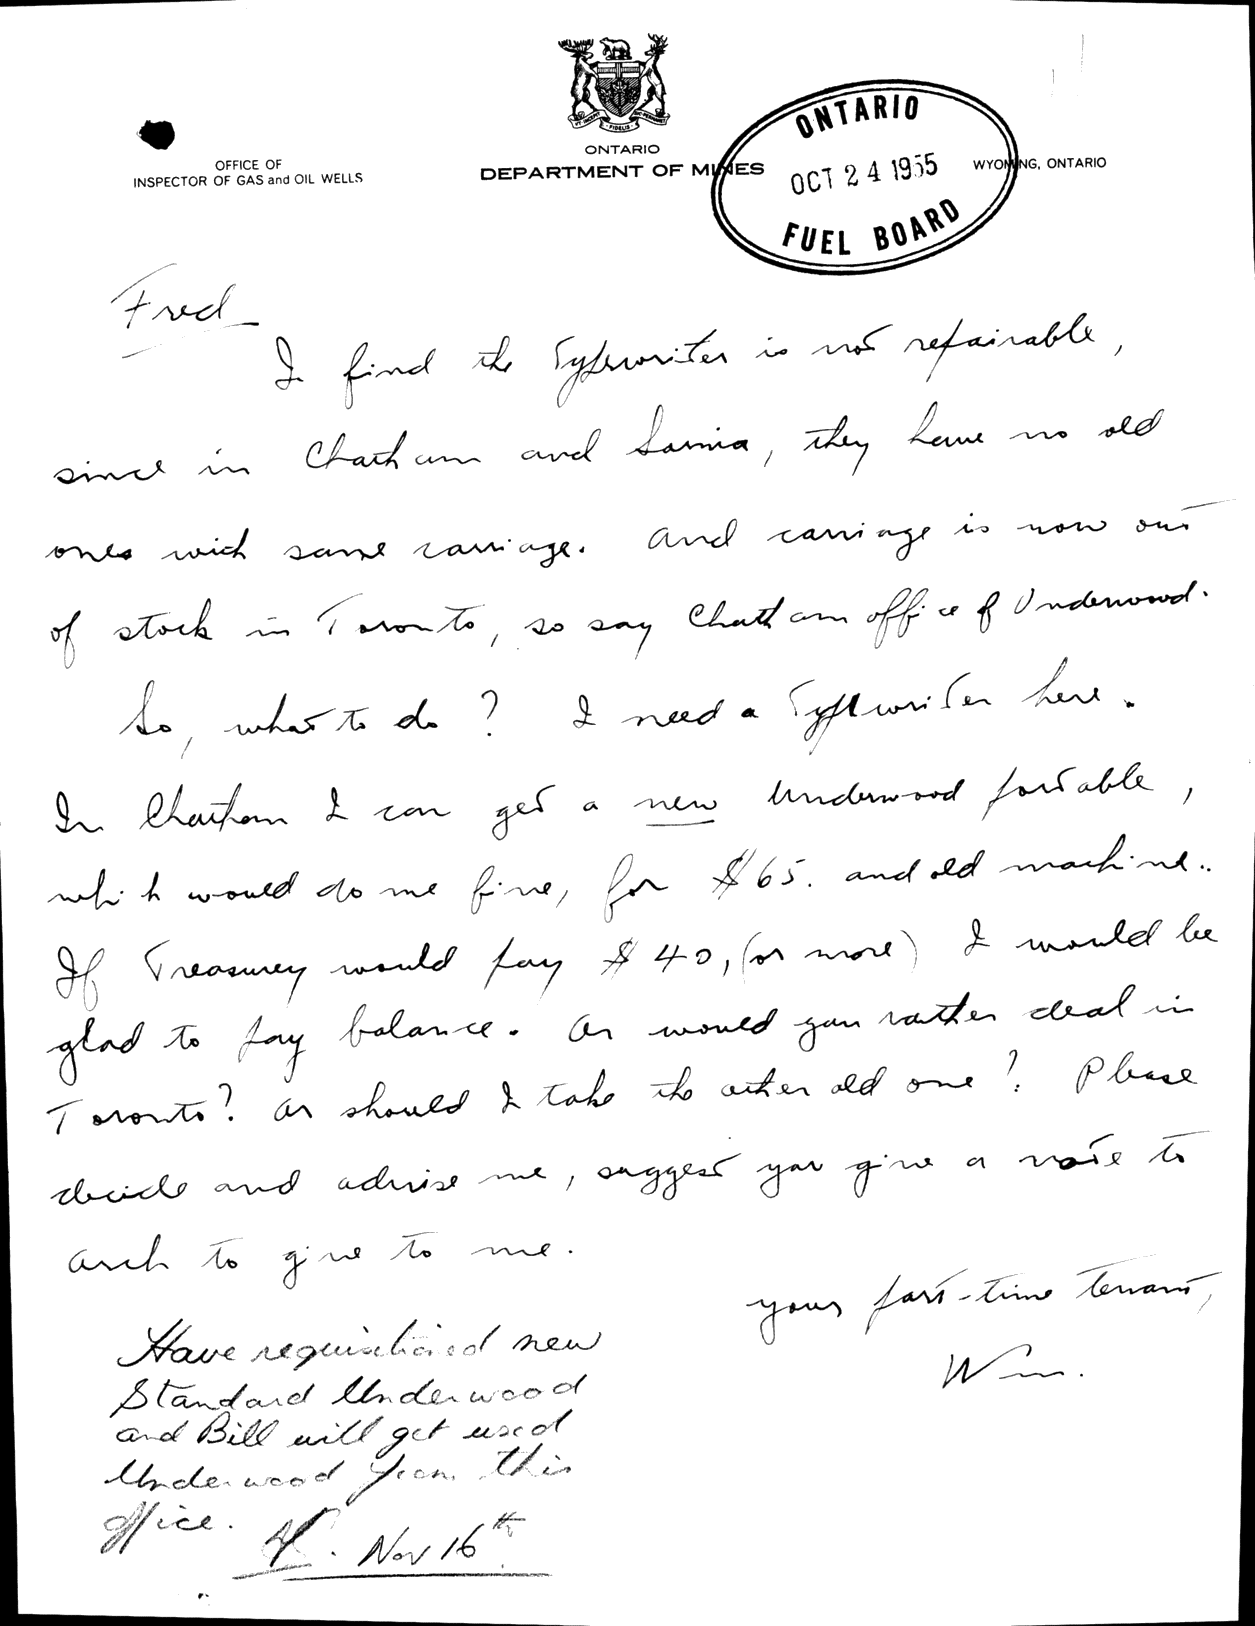 UT INCEPIT
FIDELIS
SIC PERMANET
ONTARIO
DEPARTMENT OF MINES
OFFICE OF
INSPECTOR OF GAS and OIL WELLS
WYOMING, ONTARIO
ONTARIO
OCT 24 1955
FUEL BOARD
Fred
I find the Typewriter is not repairable,
since in Chatham and Sarnia, they have no old
ones with same carriage. And carriage is now out
of stock in Toronto, so say Chatham office of Underwood.
So, what to do? I need a Typewriter here.
In Chatham I can get a new Underwood portable,
which would do me fine, for $65. and old machine..
If Treasurey would pay $40, (or more) I would be
glad to pay balance. Or would you rather deal in
Toronto? Or should I take the other old one? Please
decide and advise me, suggest you give a note to
Arch to give to me.
your part-time tenant,
Wm.
Have requisitioned new
Standard Underwood
and Bill will get used
Underwood from this
office.
Nov 16th